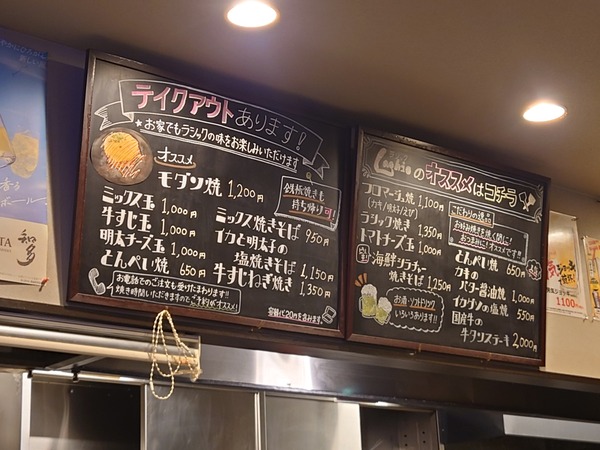 テイクアウトあります!
★お家でもラシックの味をお楽しみいただけます
オススメ
モダン焼 1,200円
鉄板焼きも
持ち帰り可!
ミックス玉 1,000円
牛すじ玉 1,000円
明太チーズ玉 1,000円
とんぺい焼 650円
ミックス焼きそば 950円
イカと明太子の
塩焼きそば 1,150円
牛すじねぎ焼き 1,350円
お電話でのご注文も受けたまわります!!
焼き時間いただきますのでご予約がオススメ!
容器代20円を含みます。
のオススメはコチラ
フロマージュ焼 1,100円
ラシック焼き 1,350円
トマトチーズ玉 1,000円
海鮮シラチャー
焼きそば 1,250円
お酒・ソフトドリンク
いろいろあります!!
こだわりの逸品
お好み焼きを焼く間に!
おつまみに!オススメです!!
とんぺい焼 650円
カキの
バター醤油焼 1,000円
イカゲソの塩焼 550円
国産牛の
牛タンステーキ 2,000円
知多
1100